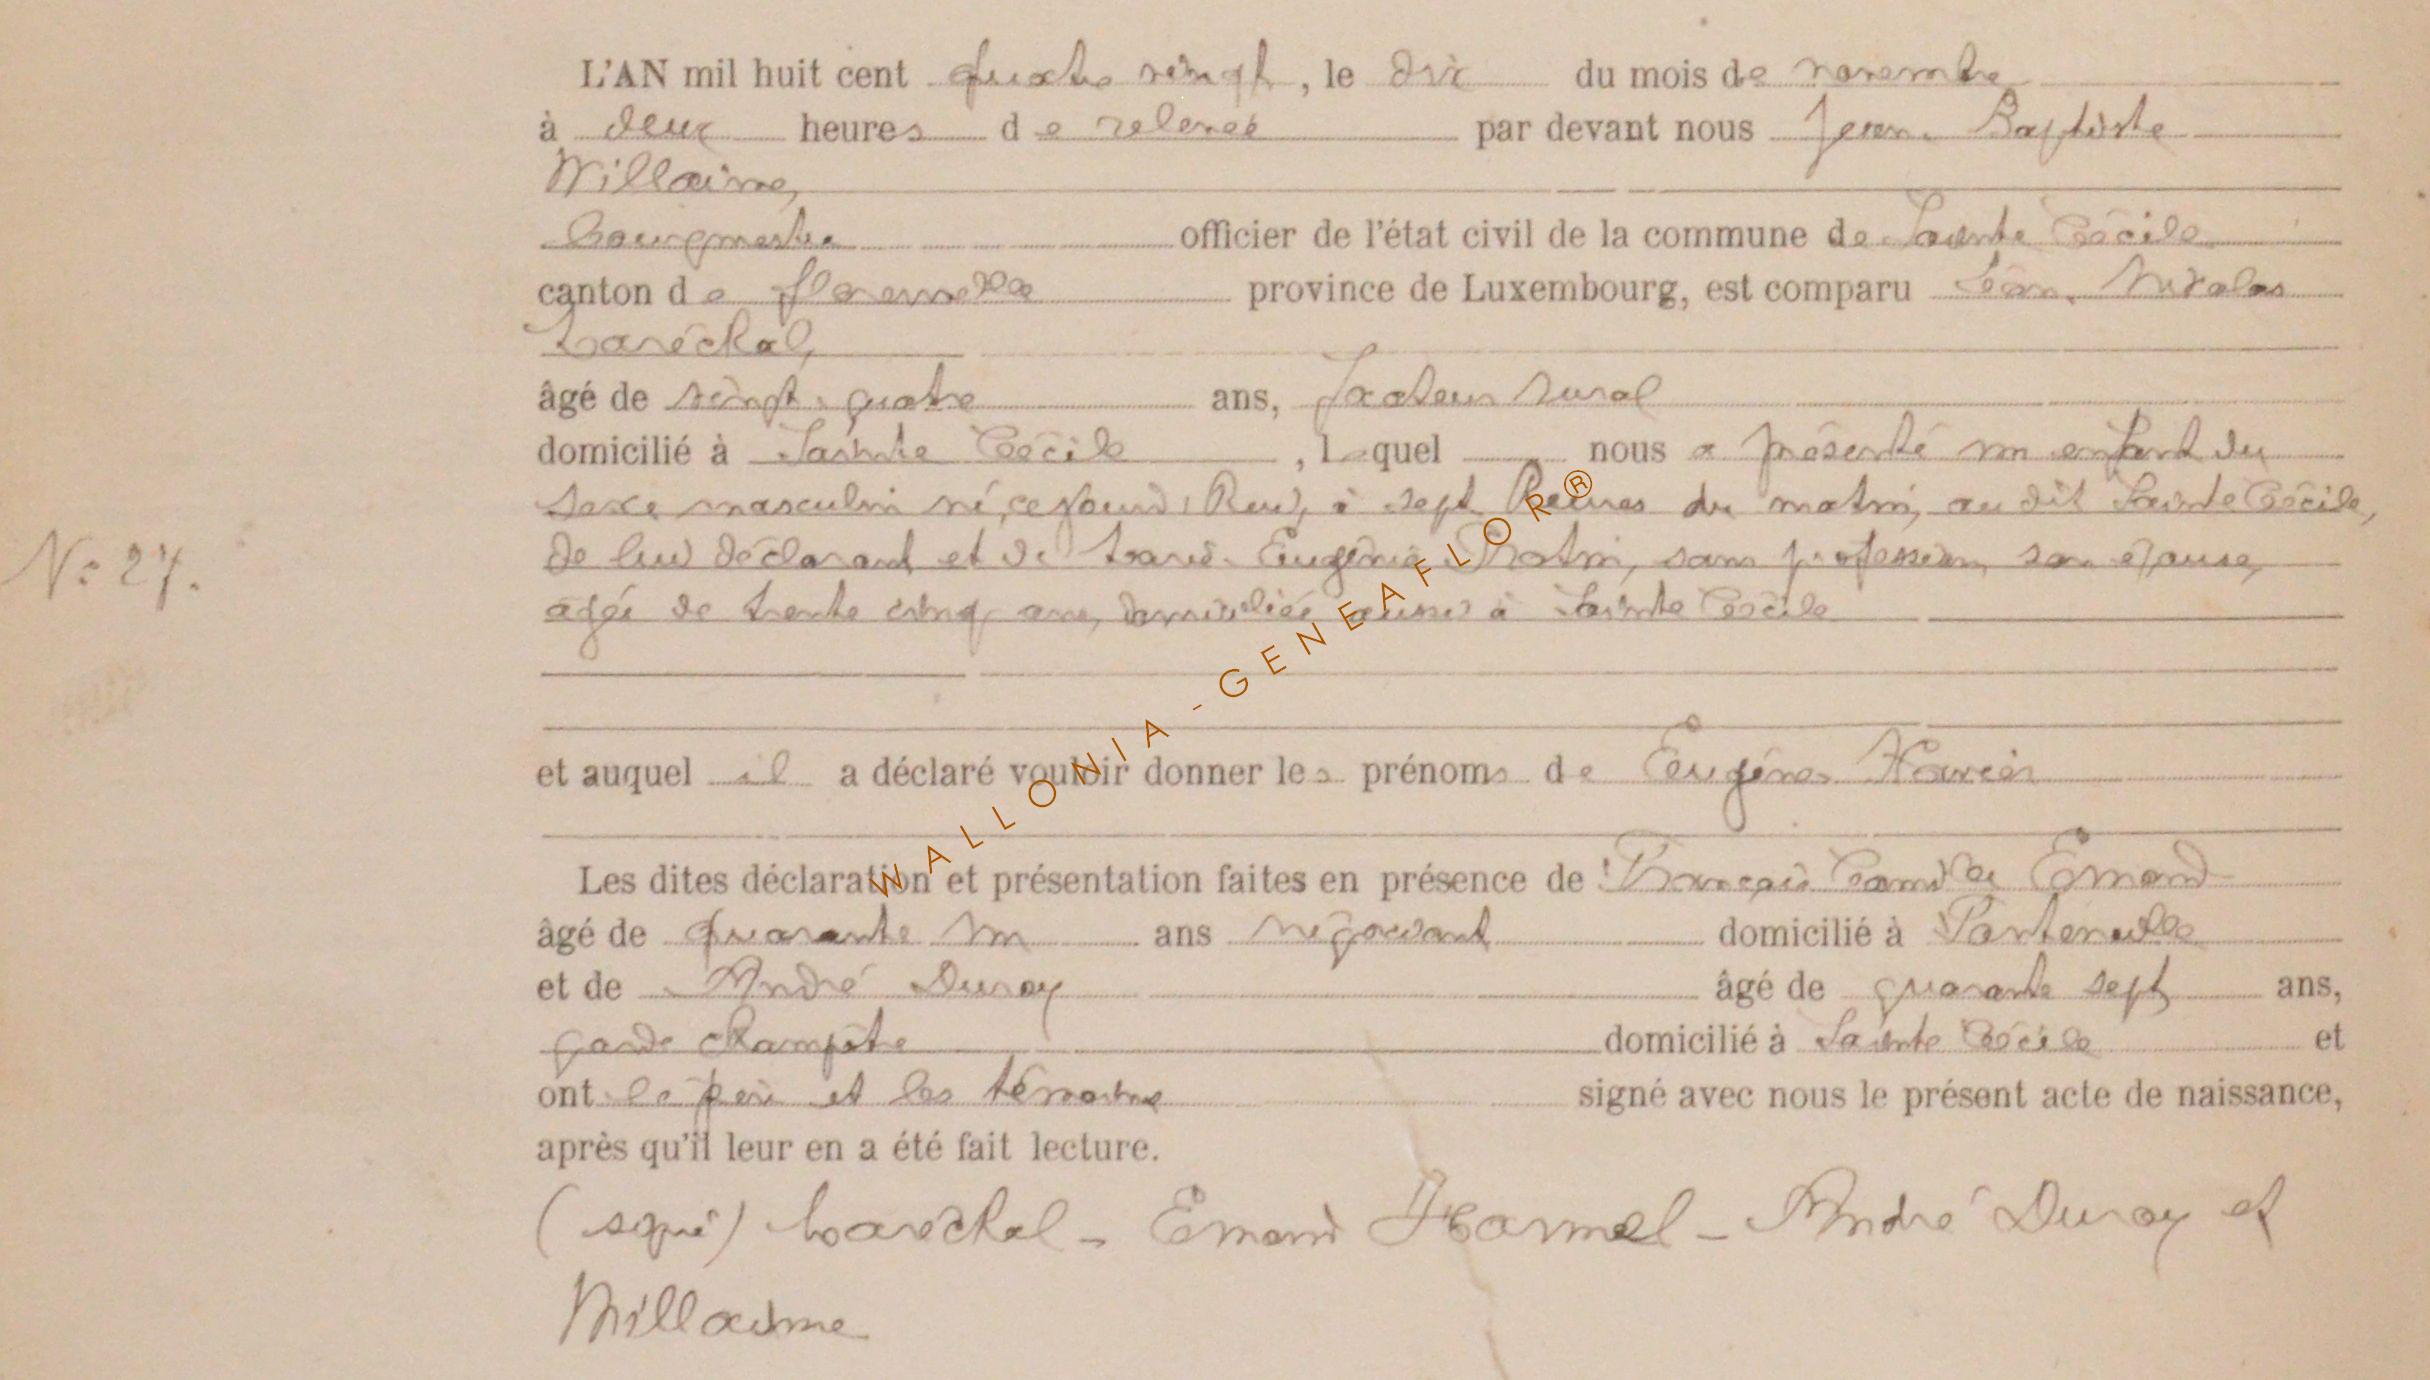 L'AN mil huit cent quatre vingt, le dix du mois de novembre
à deux heures de relevée par devant nous Jean Baptiste
Willaime,
bourgmestre officier de l'état civil de la commune de Sainte Cécile
canton de florenville province de Luxembourg, est comparu Jean Nicolas
Maréchal,
âgé de vingt quatre ans, facteur rural
domicilié à Sainte Cécile, lequel nous a présenté un enfant du
sexe masculin né, ce jourd'hui, à sept heures du matin, audit Sainte Cécile,
N° 27.
de lui déclarant et de Marie Eugénie sans profession son épouse,
agée de trente cinq ans, domiciliée aussi à Sainte Cécile
et auquel il a déclaré vouloir donner les prénoms de Eugène Xavier
Les dites déclaration et présentation faites en présence de François Camille Emond
âgé de quarante un ans négociant domicilié à
et de André Duroy âgé de quarante sept ans,
garde champêtre domicilié à Sainte Cécile et
ont le père et les témoins signé avec nous le présent acte de naissance,
après qu'il leur en a été fait lecture.
(signé) Maréchal - Emond Hamel - André Duroy et
Willaime
WALLONIA - GENEAFLOR®